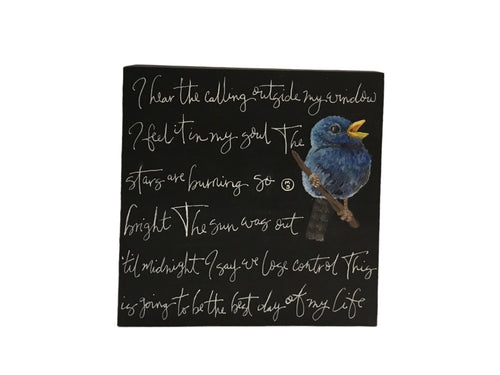 I hear the calling outside my window
I feel it in my soul The
stars are burning so
bright The sun was out
'til midnight I say we lose control This
is going to be the best day of my life